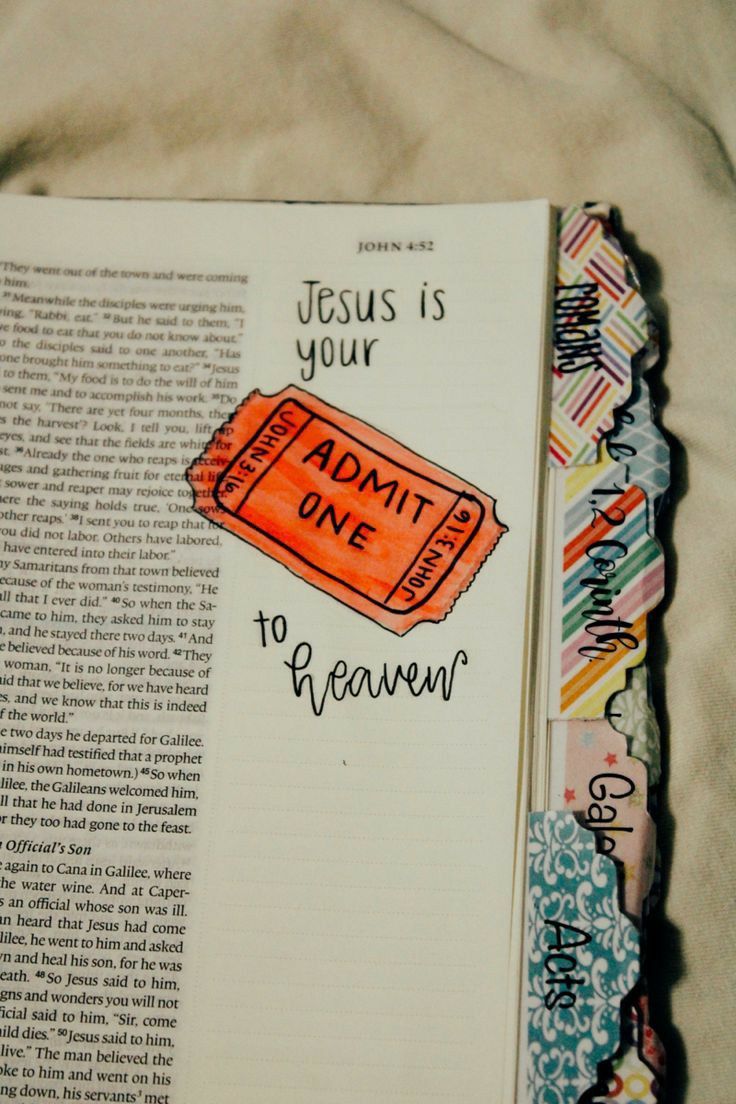 JOHN 4:52
They went out of the town and were coming
him.
31 Meanwhile the disciples were urging him,
"Rabbi, eat." 32 But he said to them, "I
food to eat that you do not know about."
the disciples said to one another, "Has
one brought him something to eat?" 34 Jesus
to them, "My food is to do the will of him
sent me and to accomplish his work. 35 Do
not say, 'There are yet four months, then
the harvest'? Look, I tell you, lift up
eyes, and see that the fields are white for
36 Already the one who reaps is
and gathering fruit for eternal life,
sower and reaper may rejoice together.
the saying holds true, 'One sows
other reaps.' 38 I sent you to reap that for
you did not labor. Others have labored,
have entered into their labor."
Samaritans from that town believed
because of the woman's testimony, "He
all that I ever did." 40 So when the Sa-
came to him, they asked him to stay
and he stayed there two days. 41 And
believed because of his word. 42 They
woman, "It is no longer because of
that we believe, for we have heard
and we know that this is indeed
of the world."
two days he departed for Galilee.
himself had testified that a prophet
in his own hometown.) 45 So when
the Galileans welcomed him,
all that he had done in Jerusalem
they too had gone to the feast.
Official's Son
again to Cana in Galilee, where
the water wine. And at Caper-
an official whose son was ill.
heard that Jesus had come
he went to him and asked
and heal his son, for he was
48 So Jesus said to him,
and wonders you will not
said to him, "Sir, come
dies." 50 Jesus said to him,
The man believed the
to him and went on his
going down, his servants3 met
Jesus is
your
JOHN 3:16
ADMIT
ONE
JOHN 3:16
to
heaven
romans
1.2 Corinth
Gala
Acts